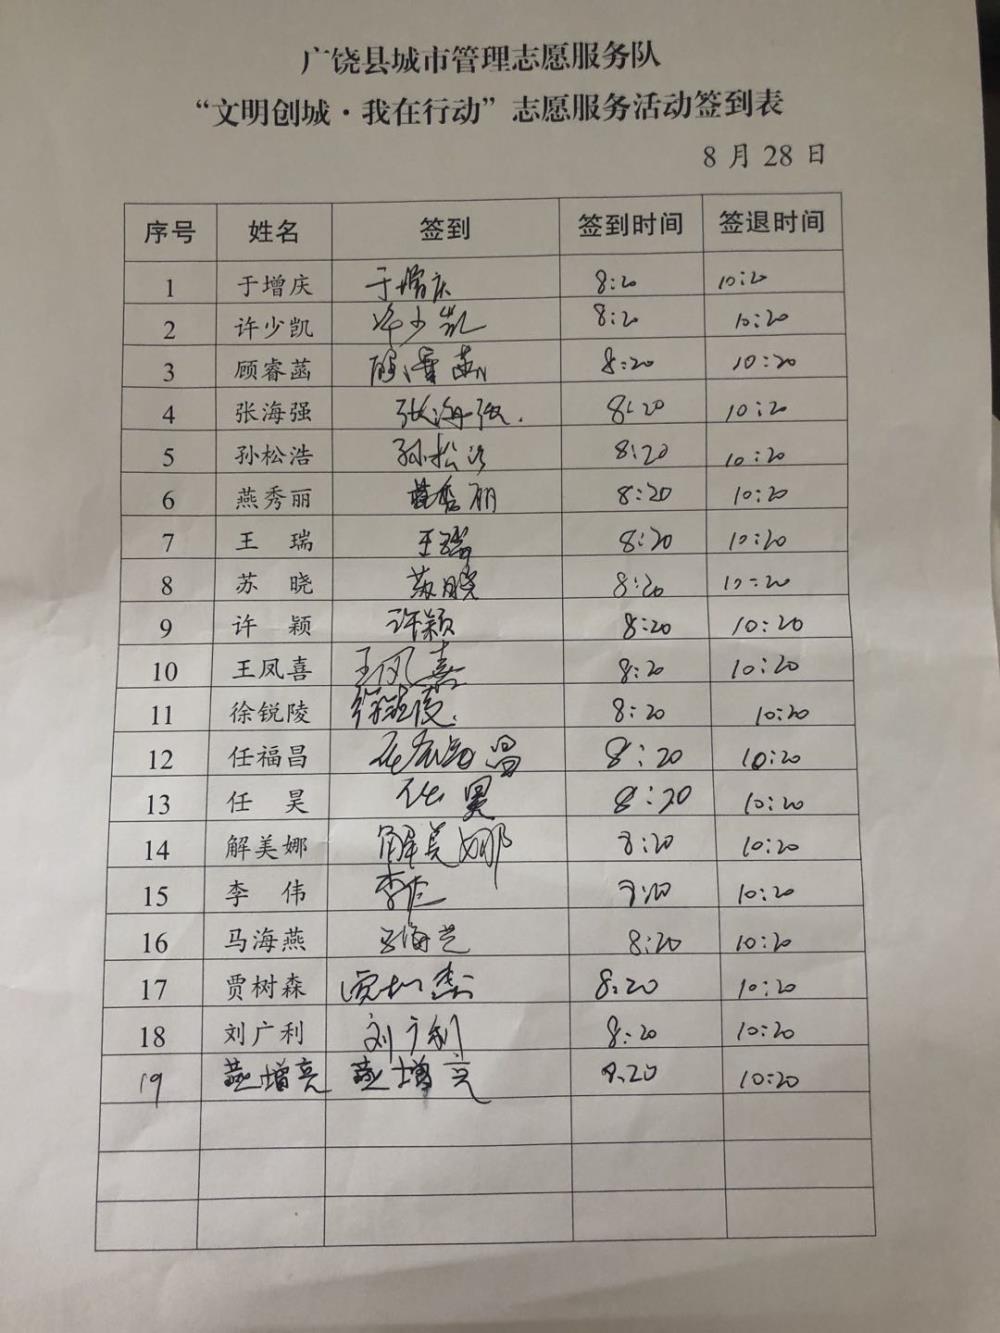 广饶县城市管理志愿服务队
“文明创城·我在行动”志愿服务活动签到表
8月28日
序号 姓名 签到 签到时间 签退时间
1 于增庆 于增庆 8:20 10:20
2 许少凯 许少凯 8:20 10:20
3 顾睿菡 顾睿菡 8:20 10:20
4 张海强 张海强. 8:20 10:20
5 孙松浩 孙松浩 8:20 10:20
6 燕秀丽 燕秀丽 8:20 10:20
7 王瑞 王瑞 8:20 10:20
8 苏晓 苏晓 8:20 10:20
9 许颖 许颖 8:20 10:20
10 王凤喜 王凤喜 8:20 10:20
11 徐锐陵 徐锐陵. 8:20 10:20
12 任福昌 任福昌 8:20 10:20
13 任昊 任昊 8:20 10:20
14 解美娜 解美娜 8:20 10:20
15 李伟 李伟 8:20 10:20
16 马海燕 马海燕 8:20 10:20
17 贾树森 贾树森 8:20 10:20
18 刘广利 刘广利 8:20 10:20
19 燕增亮 燕增亮 8:20 10:20